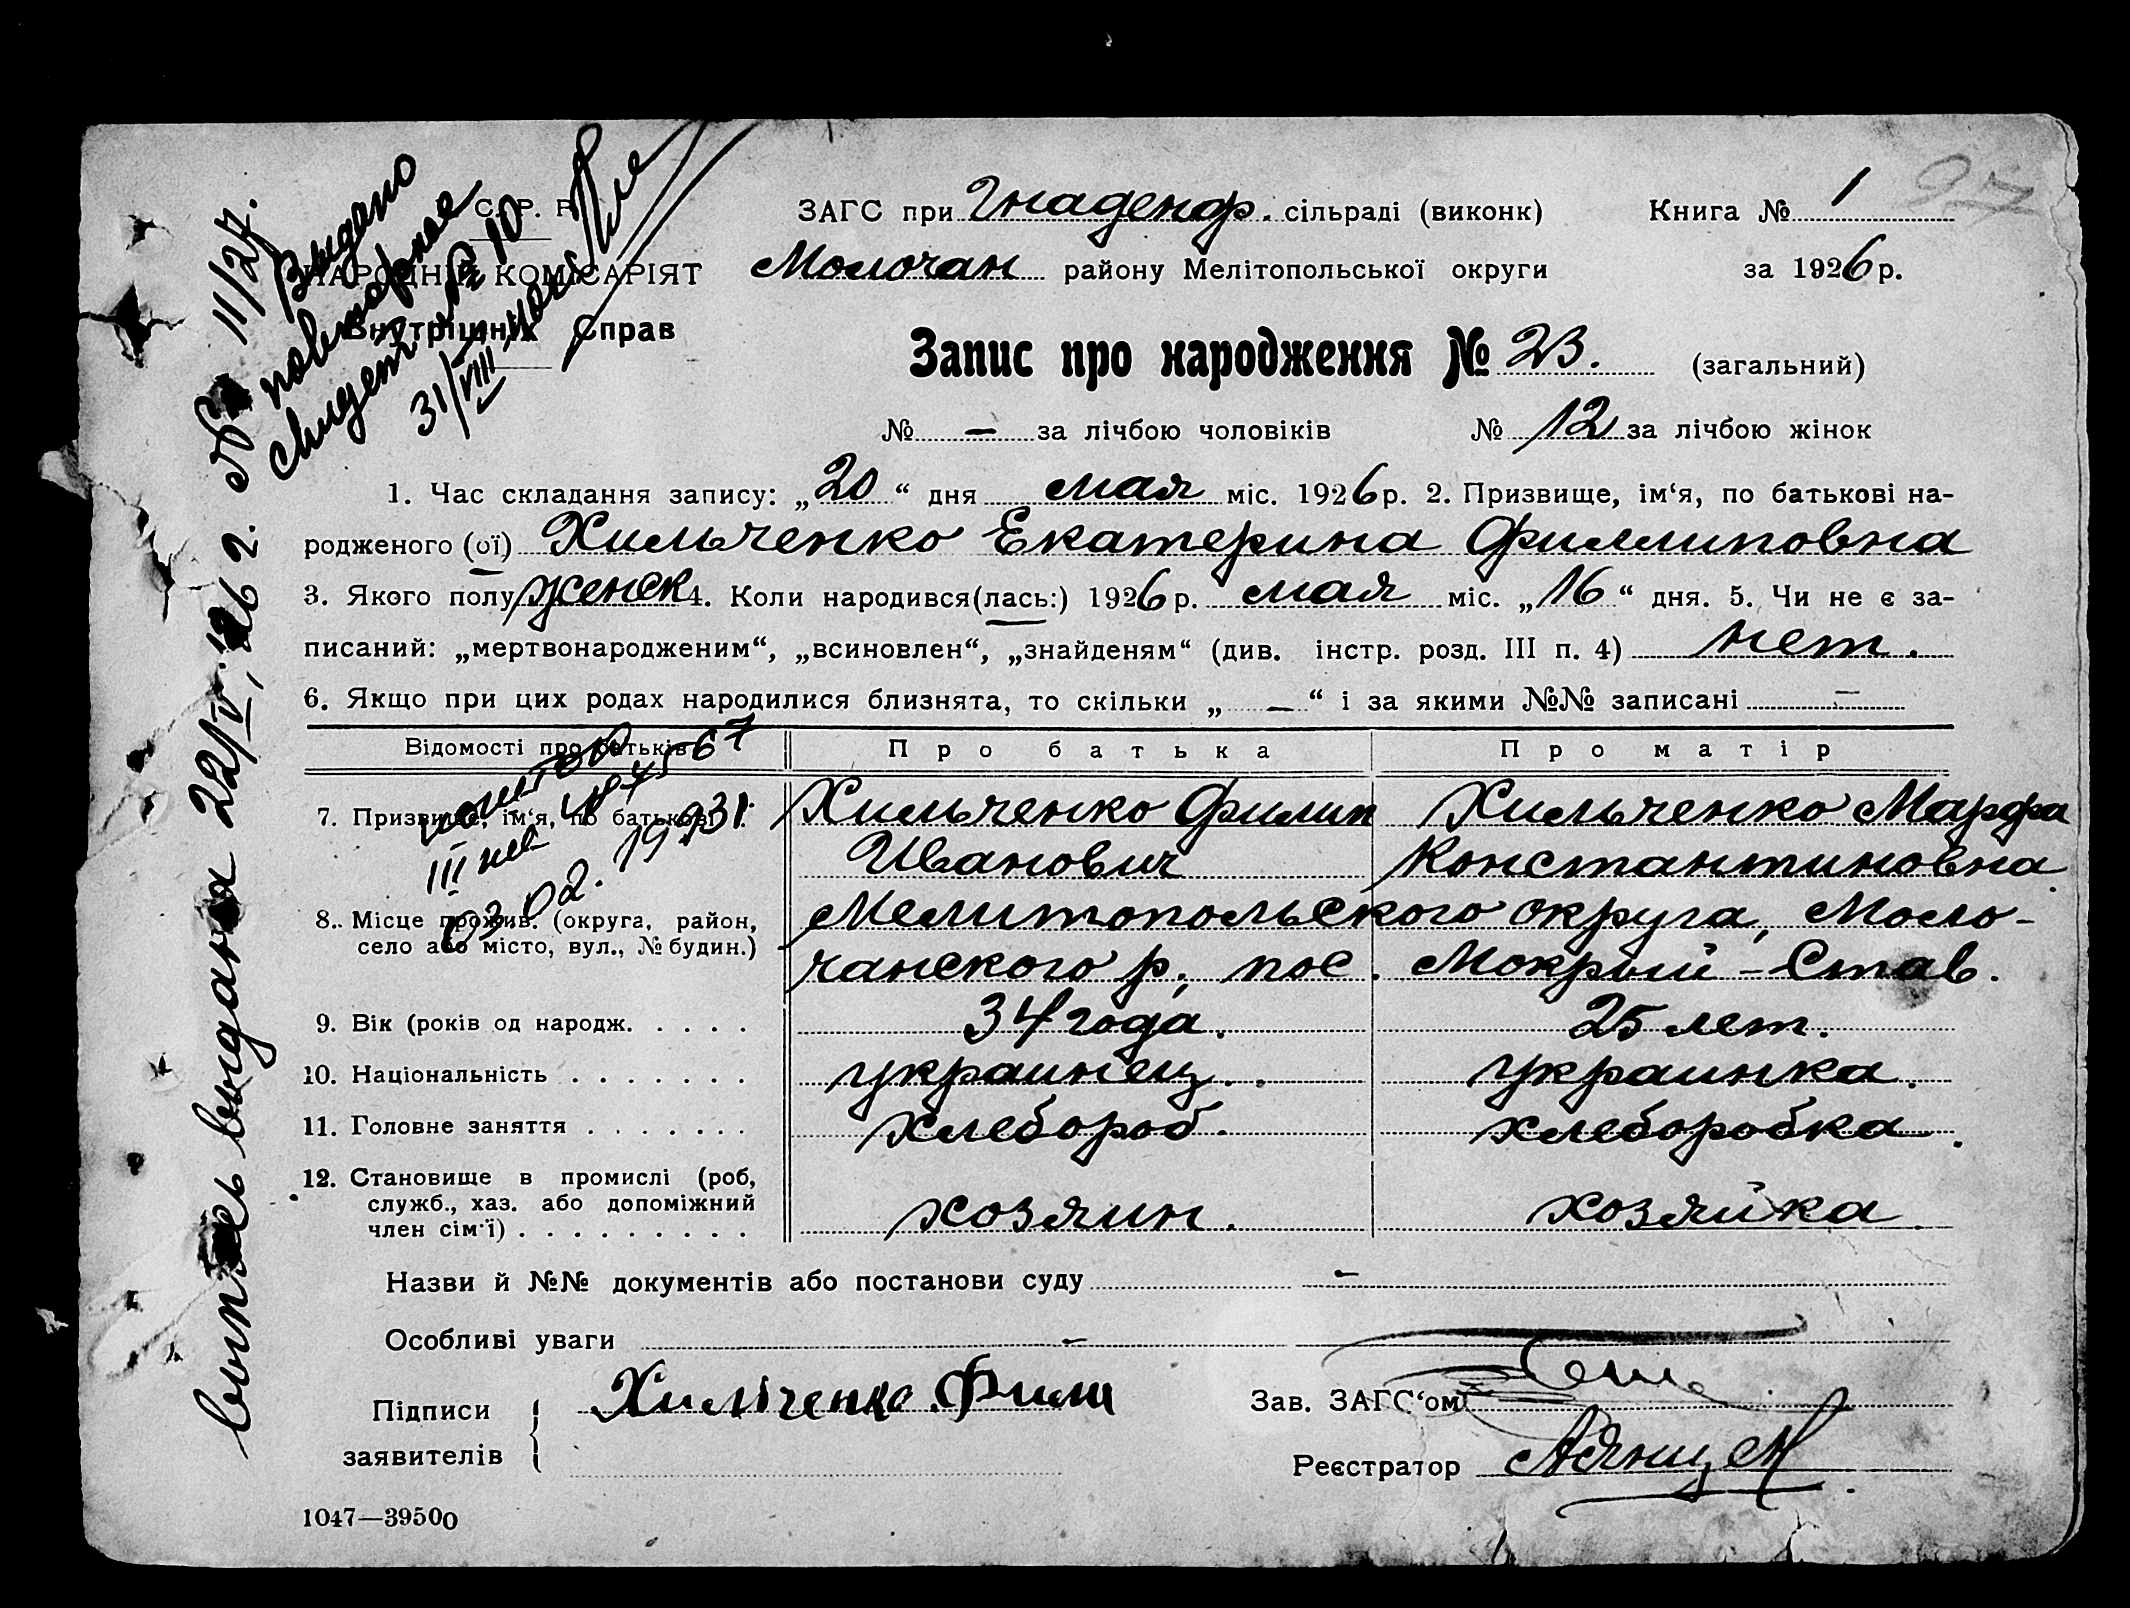 С. Р. Р.
НАРОДНІЙ КОМІСАРІЯТ
Внутрішніх Справ
Выдано
повторное
свидет. № 10
31/VIII
ЗАГС при Гнаденф. сільраді (виконк)
Книга № 1
97
Молочан району Мелітопольської округи
за 1926 р.
Запис про народження № 23. (загальний)
№ — за лічбою чоловіків № 12 за лічбою жінок
1. Час складання запису: „20“ дня мая міс. 1926 р. 2. Призвище, ім‘я, по батькові на-
родженого (ої) Хильченко Екатерина Филлиповна
3. Якого полу женск 4. Коли народився(лась:) 1926 р. мая міс. „16“ дня. 5. Чи не є за-
писаний: „мертвонародженим“, „всиновлен“, „знайденям“ (див. інстр. розд. III п. 4) нет.
6. Якщо при цих родах народилися близнята, то скільки „ — “ і за якими №№ записані —
Відомості про батьків Про батька Про матір
7. Призвище, ім‘я, по батькові Хильченко Филип Хильченко Марфа
Иванович Константиновна
8. Місце прожив. (округа, район, Мелитопольского округа, Моло-
село або місто, вул., № будин.) чанского р, пос. Мокрый - Став.
9. Вік (років од народж. . . . . 34 года. 25 лет.
10. Національність . . . . . . . украинец. украинка.
11. Головне заняття . . . . . . . хлебороб. хлеборобка.
12. Становище в промислі (роб,
служб., хаз. або допоміжний
член сім‘ї) . . . . . . . . . хозяин. хозяйка.
Назви й №№ документів або постанови суду —
Особливі уваги —
Підписи
заявителів
Хиліченко Филип
Зав. ЗАГС‘ом
Реєстратор
1047—39500
выпись выдана 22/V, 26 г. № 11/27.